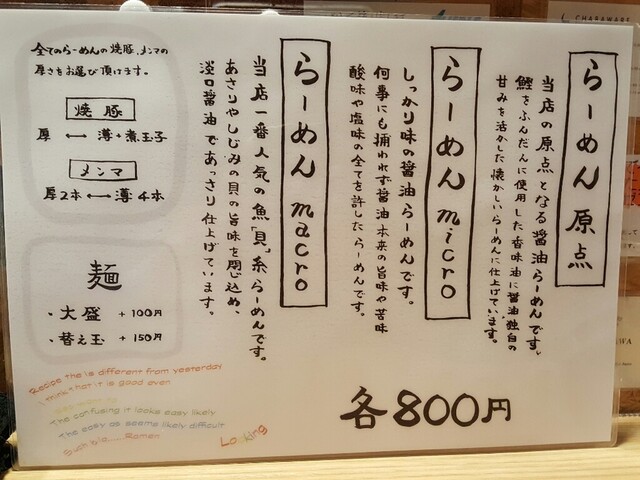 らーめん 原点
当店の原点となる醤油らーめんです。
鰹をふんだんに使用した香味油に醤油独自の
甘みを活かした懐かしいらーめんに仕上げています。
らーめん micro
しっかり味の醤油らーめんです。
何事にも捕われず醤油本来の旨味や苦味
酸味や塩味の全てを許したらーめんです。
らーめん macro
当店一番人気の魚「貝」系らーめんです。
あさりやしじみの貝の旨味を閉じ込め、
淡口醤油であっさり仕上げています。
各800円
全てのらーめんの焼豚、メンマの
厚さをお選び頂けます。
焼豚
厚 ⟷ 薄+煮玉子
メンマ
厚2本⟷薄4本
麺
・大盛 +100円
・替え玉 +150円
Recipe the is different from yesterday
I think that it is good even
The confusing it looks easy likely
The easy as seems likely difficult
Such bile......Ramen
Looking